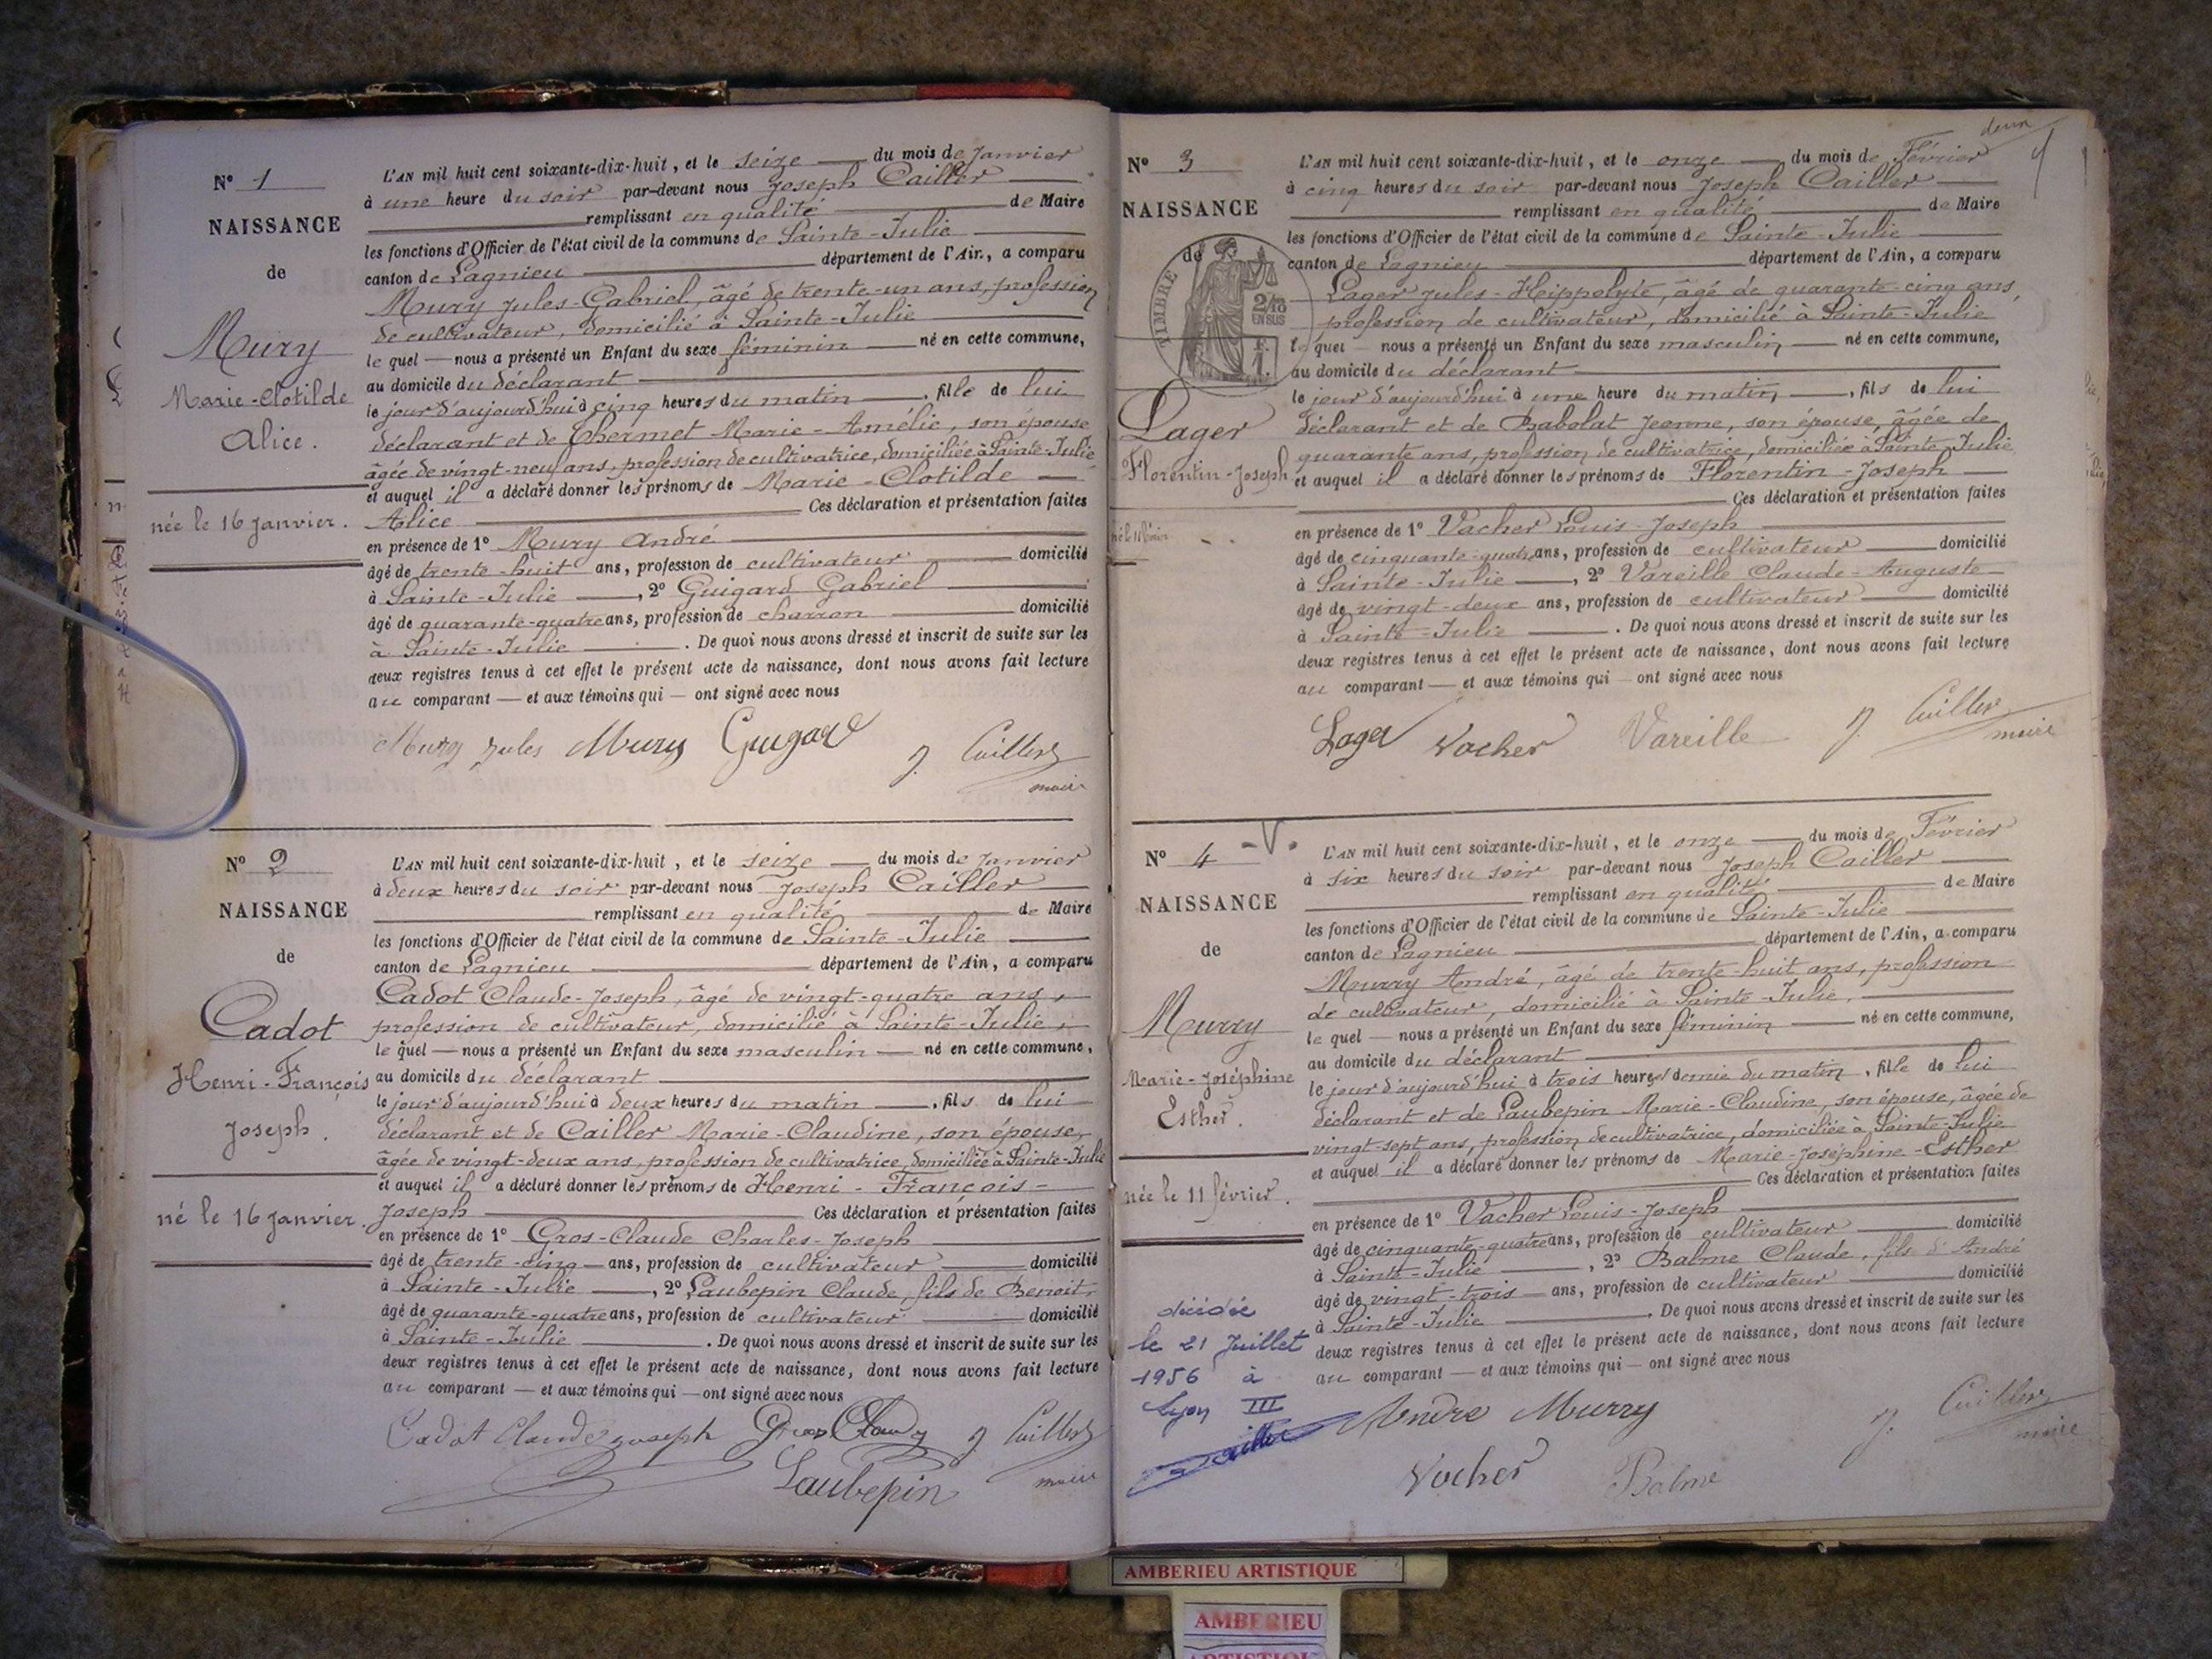 N° 1
NAISSANCE
de
Mury
Marie-Clotilde
Alice.
née le 16 Janvier.
L'AN mil huit cent soixante-dix-huit, et le seize du mois de Janvier
à une heure du soir par-devant nous Joseph Cailler
remplissant en qualité de Maire
les fonctions d'Officier de l'état civil de la commune de Sainte-Julie
canton de Lagnieu département de l'Ain, a comparu
Mury Jules-Gabriel, âgé de trente-un ans, profession
de cultivateur, domicilié à Sainte-Julie
le quel — nous a présenté un Enfant du sexe féminin — né en cette commune,
au domicile du déclarant
le jour d'aujourd'hui à cinq heures du matin —, fille de lui
déclarant et de Thermet Marie-Amélie, son épouse
âgée de vingt-neuf ans, profession de cultivatrice, domiciliée à Sainte-Julie
et auquel il a déclaré donner les prénoms de Marie-Clotilde
Alice Ces déclaration et présentation faites
en présence de 1° Mury André
âgé de trente-huit ans, profession de cultivateur domicilié
à Sainte-Julie —, 2° Guigard Gabriel
âgé de quarante-quatre ans, profession de charron domicilié
à Sainte-Julie. De quoi nous avons dressé et inscrit de suite sur les
deux registres tenus à cet effet le présent acte de naissance, dont nous avons fait lecture
au comparant — et aux témoins qui — ont signé avec nous
Mury Jules Mury Guigard J. Cailler
maire
N° 2
NAISSANCE
de
Cadot
Henri-François
Joseph.
né le 16 Janvier.
L'AN mil huit cent soixante-dix-huit, et le seize du mois de Janvier
à deux heures du soir par-devant nous Joseph Cailler
remplissant en qualité de Maire
les fonctions d'Officier de l'état civil de la commune de Sainte-Julie
canton de Lagnieu département de l'Ain, a comparu
Cadot Claude-Joseph, âgé de vingt-quatre ans,
profession de cultivateur, domicilié à Sainte-Julie,
le quel — nous a présenté un Enfant du sexe masculin — né en cette commune,
au domicile du déclarant
le jour d'aujourd'hui à deux heures du matin —, fils de lui
déclarant et de Cailler Marie-Claudine, son épouse,
âgée de vingt-deux ans, profession de cultivatrice, domiciliée à Sainte-Julie
et auquel il a déclaré donner les prénoms de Henri-François-
Joseph Ces déclaration et présentation faites
en présence de 1° Gros-Claude Charles-Joseph
âgé de trente-cinq ans, profession de cultivateur domicilié
à Sainte-Julie —, 2° Laubepin Claude, fils de Benoit,
âgé de quarante-quatre ans, profession de cultivateur domicilié
à Sainte-Julie. De quoi nous avons dressé et inscrit de suite sur les
deux registres tenus à cet effet le présent acte de naissance, dont nous avons fait lecture
au comparant — et aux témoins qui — ont signé avec nous
Cadot Claude Joseph Gros Claude J Cailler
Laubepin maire
deux
N° 3
NAISSANCE
de
TIMBRE
2/10
EN SUS
Lager
Florentin-Joseph
L'AN mil huit cent soixante-dix-huit, et le onze du mois de Février
à cinq heures du soir par-devant nous Joseph Cailler
remplissant en qualité de Maire
les fonctions d'Officier de l'état civil de la commune de Sainte-Julie
canton de Lagnieu département de l'Ain, a comparu
Lager Jules-Hippolyte, âgé de quarante-cinq ans,
profession de cultivateur, domicilié à Sainte-Julie
le quel nous a présenté un Enfant du sexe masculin — né en cette commune,
au domicile du déclarant
le jour d'aujourd'hui à une heure du matin —, fils de lui
déclarant et de Babolat Jeanne, son épouse, âgée de
quarante ans, profession de cultivatrice, domiciliée à Sainte-Julie
et auquel il a déclaré donner les prénoms de Florentin-Joseph
Ces déclaration et présentation faites
en présence de 1° Vacher Louis-Joseph
âgé de cinquante-quatre ans, profession de cultivateur domicilié
à Sainte-Julie —, 2° Vareille Claude-Auguste
âgé de vingt-deux ans, profession de cultivateur domicilié
à Sainte-Julie. De quoi nous avons dressé et inscrit de suite sur les
deux registres tenus à cet effet le présent acte de naissance, dont nous avons fait lecture
au comparant — et aux témoins qui — ont signé avec nous
Lager Vacher Vareille J. Cailler
maire
N° 4
NAISSANCE
de
Murry
Marie-Joséphine
Esther.
née le 11 février.
décédée
le 21 Juillet
1956 à
Lyon III
L'AN mil huit cent soixante-dix-huit, et le onze du mois de Février
à six heures du soir par-devant nous Joseph Cailler
remplissant en qualité de Maire
les fonctions d'Officier de l'état civil de la commune de Sainte-Julie
canton de Lagnieu département de l'Ain, a comparu
Murry André, âgé de trente-huit ans, profession
de cultivateur, domicilié à Sainte-Julie,
le quel — nous a présenté un Enfant du sexe féminin — né en cette commune,
au domicile du déclarant
le jour d'aujourd'hui à trois heures demie du matin, fille de lui
déclarant et de Laubepin Marie-Claudine, son épouse, âgée de
vingt-sept ans, profession de cultivatrice, domiciliée à Sainte-Julie
et auquel il a déclaré donner les prénoms de Marie-Joséphine-Esther
Ces déclaration et présentation faites
en présence de 1° Vacher Louis-Joseph
âgé de cinquante-quatre ans, profession de cultivateur domicilié
à Sainte-Julie —, 2° Balme Claude, fils d'André
âgé de vingt-trois ans, profession de cultivateur domicilié
à Sainte-Julie. De quoi nous avons dressé et inscrit de suite sur les
deux registres tenus à cet effet le présent acte de naissance, dont nous avons fait lecture
au comparant — et aux témoins qui — ont signé avec nous
André Murry J. Cailler
maire
Vacher Balme
AMBERIEU ARTISTIQUE
AMBERIEU